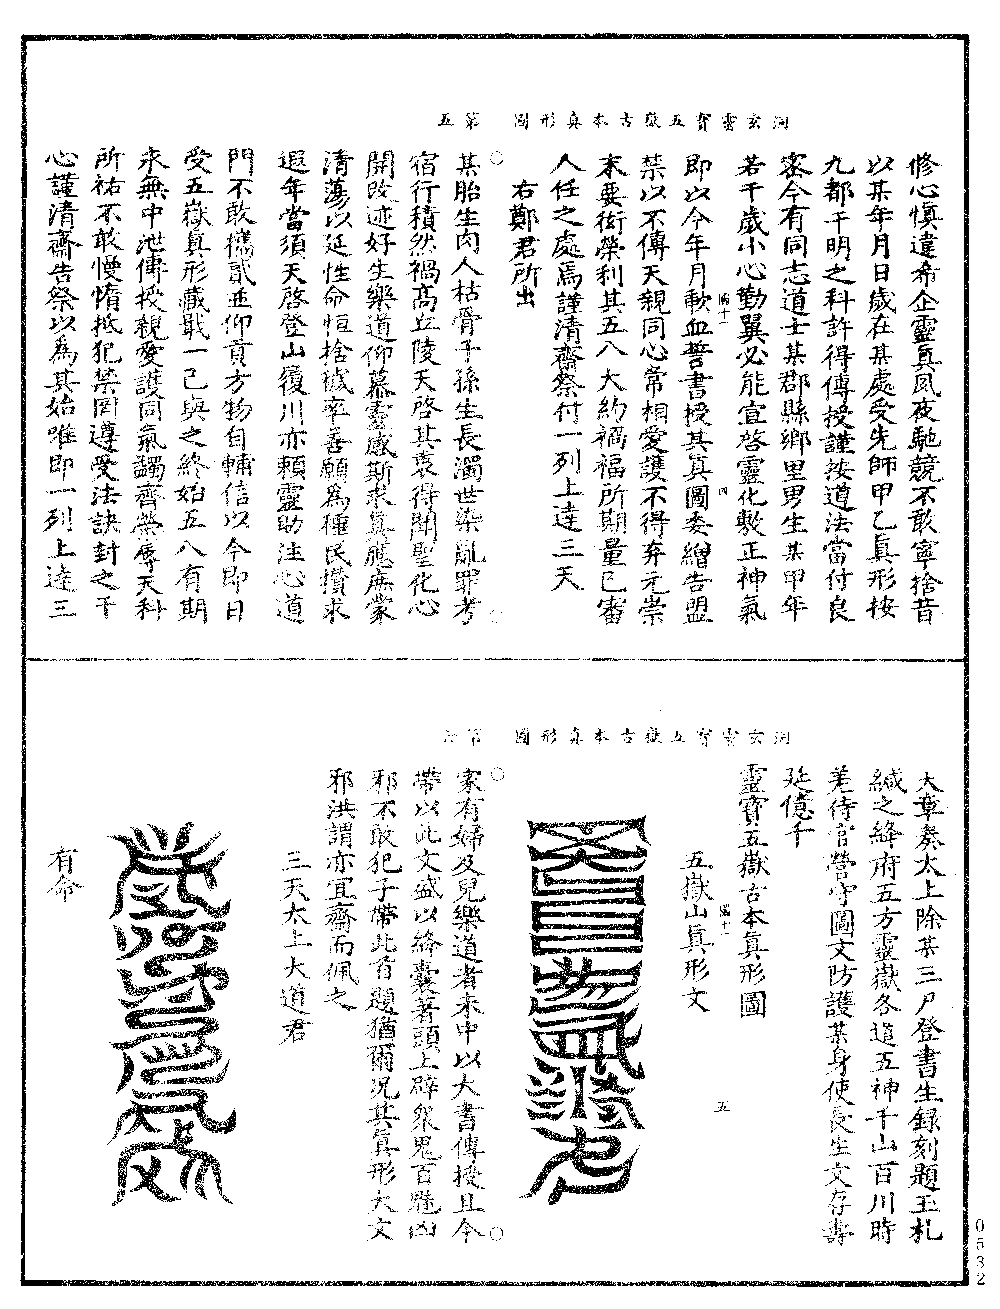 洞玄靈寶五嶽古本真形圖　第五
修心慎違希企靈真夙夜馳競不敢寧捨昔
以某年月日歲在某處受先師甲乙真形按
九都千明之科許得傳授謹按道法當付良
密今有同志道士某郡縣鄉里男生某甲年
若干歲小心勤翼必能宣啓靈化敷正神氣
即以今年月歃血誓書授其真圖委繒告盟
禁以不傳天親同心常相愛護不得弃元崇
末要衒榮利其五八大約禍福所期量已審
人任之處焉謹清齋祭付一列上達三天
右鄭君所出
某胎生肉人枯骨子孫生長濁世染亂罪考
宿行積然禍高丘陵天啓其衷得聞聖化心
開改迹好生樂道仰慕靈感斯求真應庶蒙
清蕩以延性命恒捨誠率善願為種民攢求
遐年當須天啓登山履川亦賴靈助注心道
門不敢攜貳並仰貢方物自輔信以今即日
受五嶽真形藏戢一己與之終始五八有期
來無中泄傳授親愛護同氣蠲齊榮辱天科
所祐不敢慢惰抵犯禁罔遵受法訣封之千
心謹清齋告祭以為其始唯即一列上達三
洞玄靈寶五嶽古本真形圖　第六
大章奏太上除某三尸登書生錄刻題玉札
緘之絳府五方靈嶽各遣五神千山百川時
差侍官營守圖文防護某身使長生文存壽
延億千
靈寶五嶽古本真形圖
五嶽山真形文
五
家有婦及兒樂道者來中以大書傳授且令
帶以此文盛以絳囊著頭上辟眾鬼百魅凶
邪不敢犯子帶此首題猶爾況其真形大文
邪洪謂亦宜齋而佩之
三天太上大道君
有命
0532